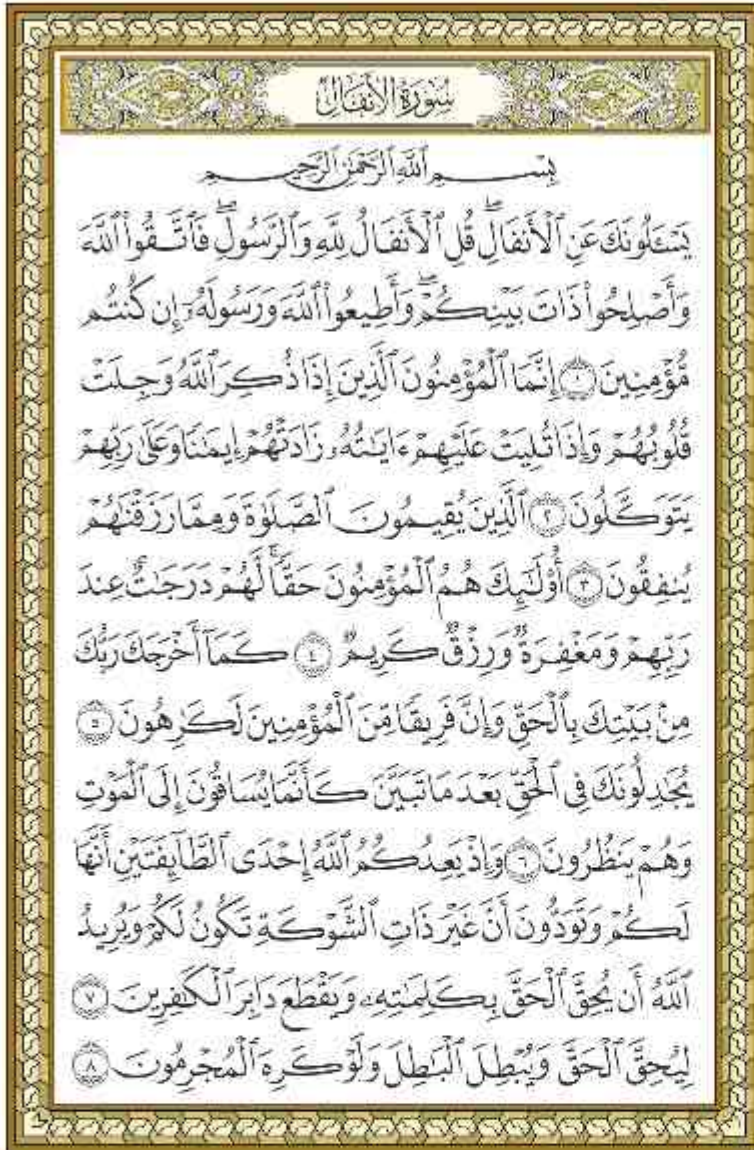 سُورَةُ الأَنفَالِ
بِسْمِ ٱللَّهِ ٱلرَّحْمَٰنِ ٱلرَّحِيمِ
يَسْـَٔلُونَكَ عَنِ ٱلْأَنفَالِۖ قُلِ ٱلْأَنفَالُ لِلَّهِ وَٱلرَّسُولِۖ فَٱتَّقُوا۟ ٱللَّهَ
وَأَصْلِحُوا۟ ذَاتَ بَيْنِكُمْۖ وَأَطِيعُوا۟ ٱللَّهَ وَرَسُولَهُۥٓ إِن كُنتُم
مُّؤْمِنِينَ ١ إِنَّمَا ٱلْمُؤْمِنُونَ ٱلَّذِينَ إِذَا ذُكِرَ ٱللَّهُ وَجِلَتْ
قُلُوبُهُمْ وَإِذَا تُلِيَتْ عَلَيْهِمْ ءَايَٰتُهُۥ زَادَتْهُمْ إِيمَٰنًا وَعَلَىٰ رَبِّهِمْ
يَتَوَكَّلُونَ ٢ ٱلَّذِينَ يُقِيمُونَ ٱلصَّلَوٰةَ وَمِمَّا رَزَقْنَٰهُمْ
يُنفِقُونَ ٣ أُو۟لَٰٓئِكَ هُمُ ٱلْمُؤْمِنُونَ حَقًّاۚ لَّهُمْ دَرَجَٰتٌ عِندَ
رَبِّهِمْ وَمَغْفِرَةٌ وَرِزْقٌ كَرِيمٌ ٤ كَمَآ أَخْرَجَكَ رَبُّكَ
مِنۢ بَيْتِكَ بِٱلْحَقِّ وَإِنَّ فَرِيقًا مِّنَ ٱلْمُؤْمِنِينَ لَكَٰرِهُونَ ٥
يُجَٰدِلُونَكَ فِى ٱلْحَقِّ بَعْدَ مَا تَبَيَّنَ كَأَنَّمَا يُسَاقُونَ إِلَى ٱلْمَوْتِ
وَهُمْ يَنظُرُونَ ٦ وَإِذْ يَعِدُكُمُ ٱللَّهُ إِحْدَى ٱلطَّآئِفَتَيْنِ أَنَّهَا
لَكُمْ وَتَوَدُّونَ أَنَّ غَيْرَ ذَاتِ ٱلشَّوْكَةِ تَكُونُ لَكُمْ وَيُرِيدُ
ٱللَّهُ أَن يُحِقَّ ٱلْحَقَّ بِكَلِمَٰتِهِۦ وَيَقْطَعَ دَابِرَ ٱلْكَٰفِرِينَ ٧
لِيُحِقَّ ٱلْحَقَّ وَيُبْطِلَ ٱلْبَٰطِلَ وَلَوْ كَرِهَ ٱلْمُجْرِمُونَ ٨